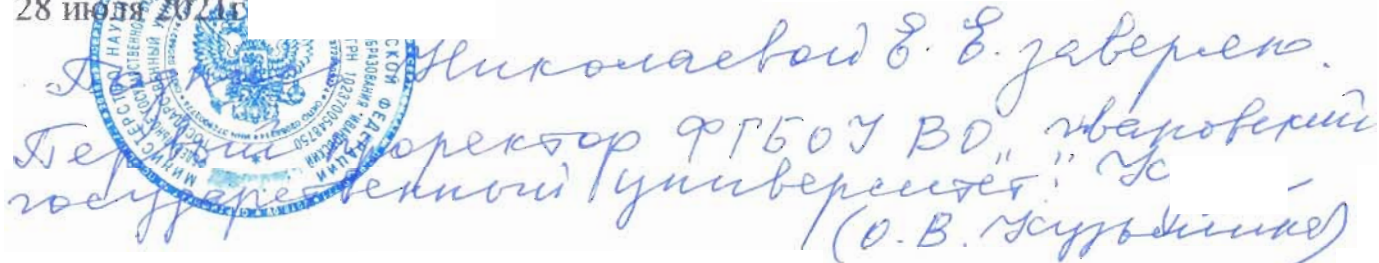 28 июля 2021г
Подпись Николаевой Е. Е. заверяю.
Первый проректор ФГБОУ ВО „Ивановский
государственный университет"
(О.В. Кузьмина)